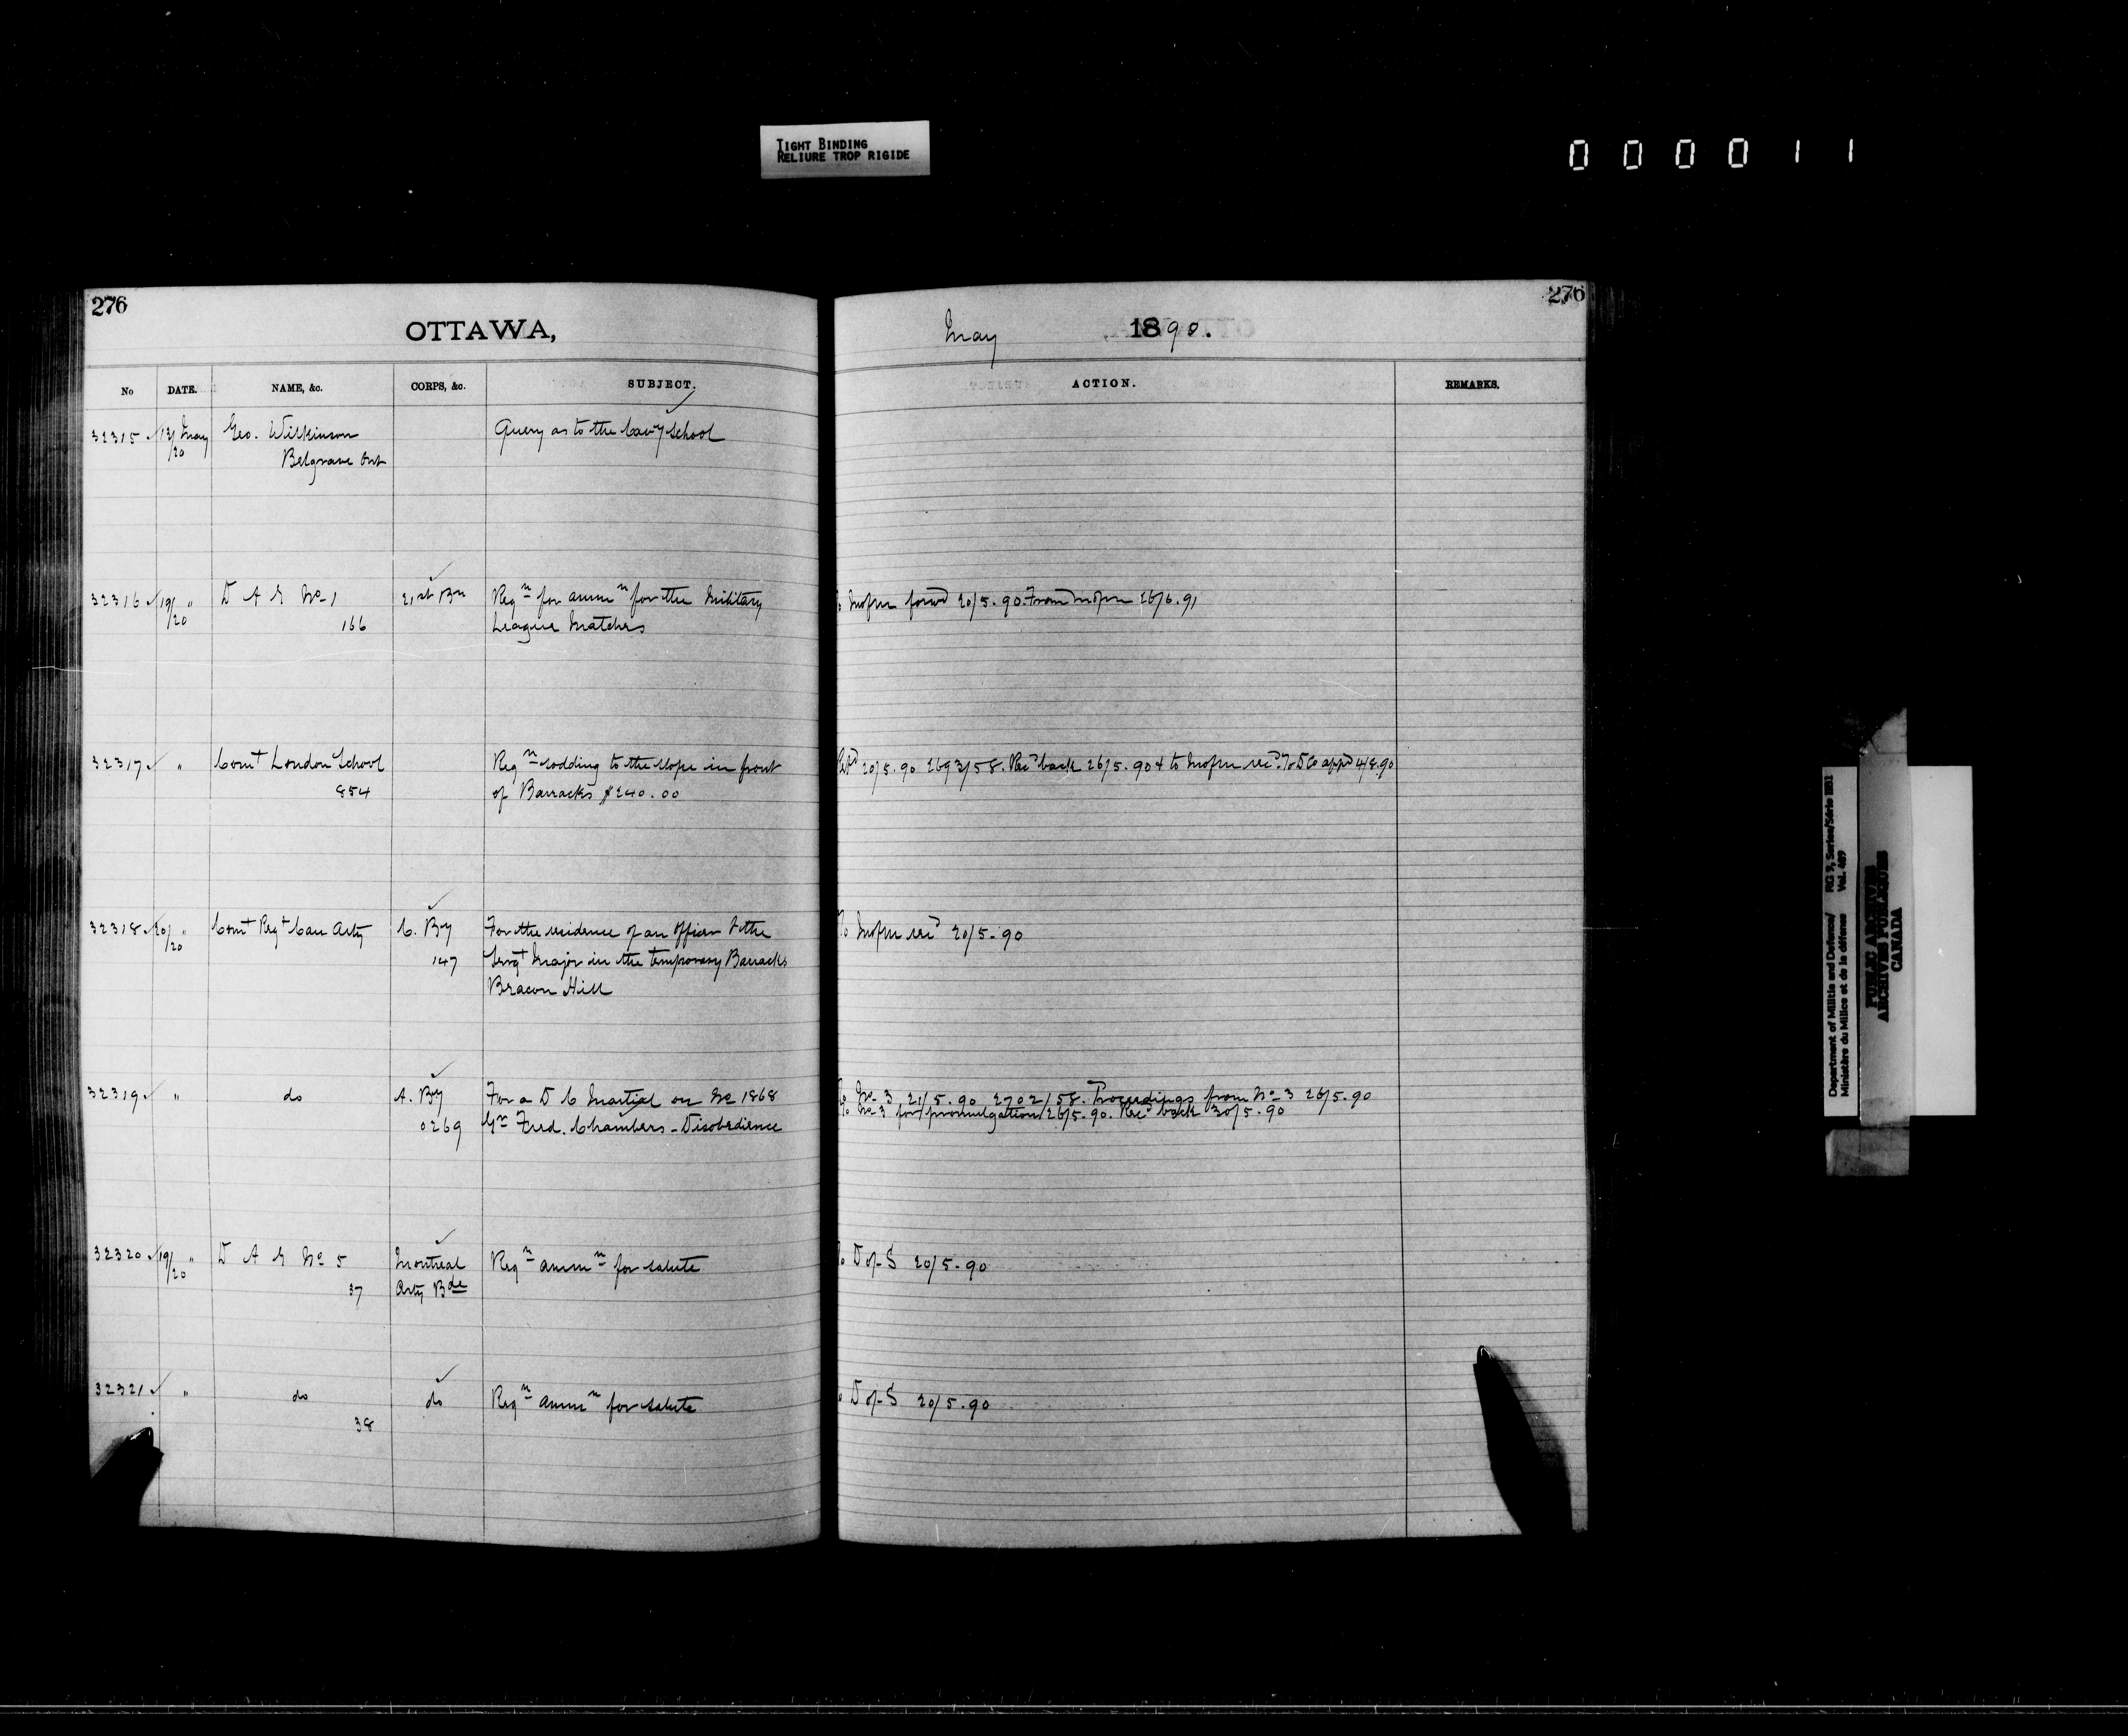 TIGHT BINDING
RELIURE TROP RIGIDE
000011
276
OTTAWA,
No DATE. NAME, &c. CORPS, &c. SUBJECT.
32315 13/20 May Geo. Wilkinson Query as to the Cavy School
Belgrave Ont
32316 19/20 " D A G No 1 21st Bn Reqn for ammn for the Military
166 League Matches
32317 " Comt London School Reqn sodding to the slope in front
854 of Barracks $240.00
32318 20/20 " Comt Regt Can Arty C. By For the residence of an Officer & the
147 Sergt Major in the temporary Barracks
Beacon Hill
32319 " do A. By For a D C Martial on No 1868
0269 Gr Fred. Chambers - Disobedience
32320 19/20 " D A G No 5 Montreal Reqn ammn for salute
37 Arty Bde
32321 " do do Reqn ammn for salute
38
276
May 1890.
ACTION. REMARKS.
forwd 20/5.90. From 26/6.91
20/5.90 2693/58. Recd back 26/5.90 & to recd. appd 4/8.90
To recd 20/5-90
To No 3 21/5.90 2702/58. Proceedings from No 3 26/5.90
To No 3 for promulgation 26/5.90. Recd back 30/5.90
To D of S 20/5-90
To D of S 20/5.90
Department of Militia and Defence/ RG 9, Series/Série IIB1
Ministère du Milice et de la défense Vol. 489
PUBLIC ARCHIVES
ARCHIVES PUBLIQUES
CANADA